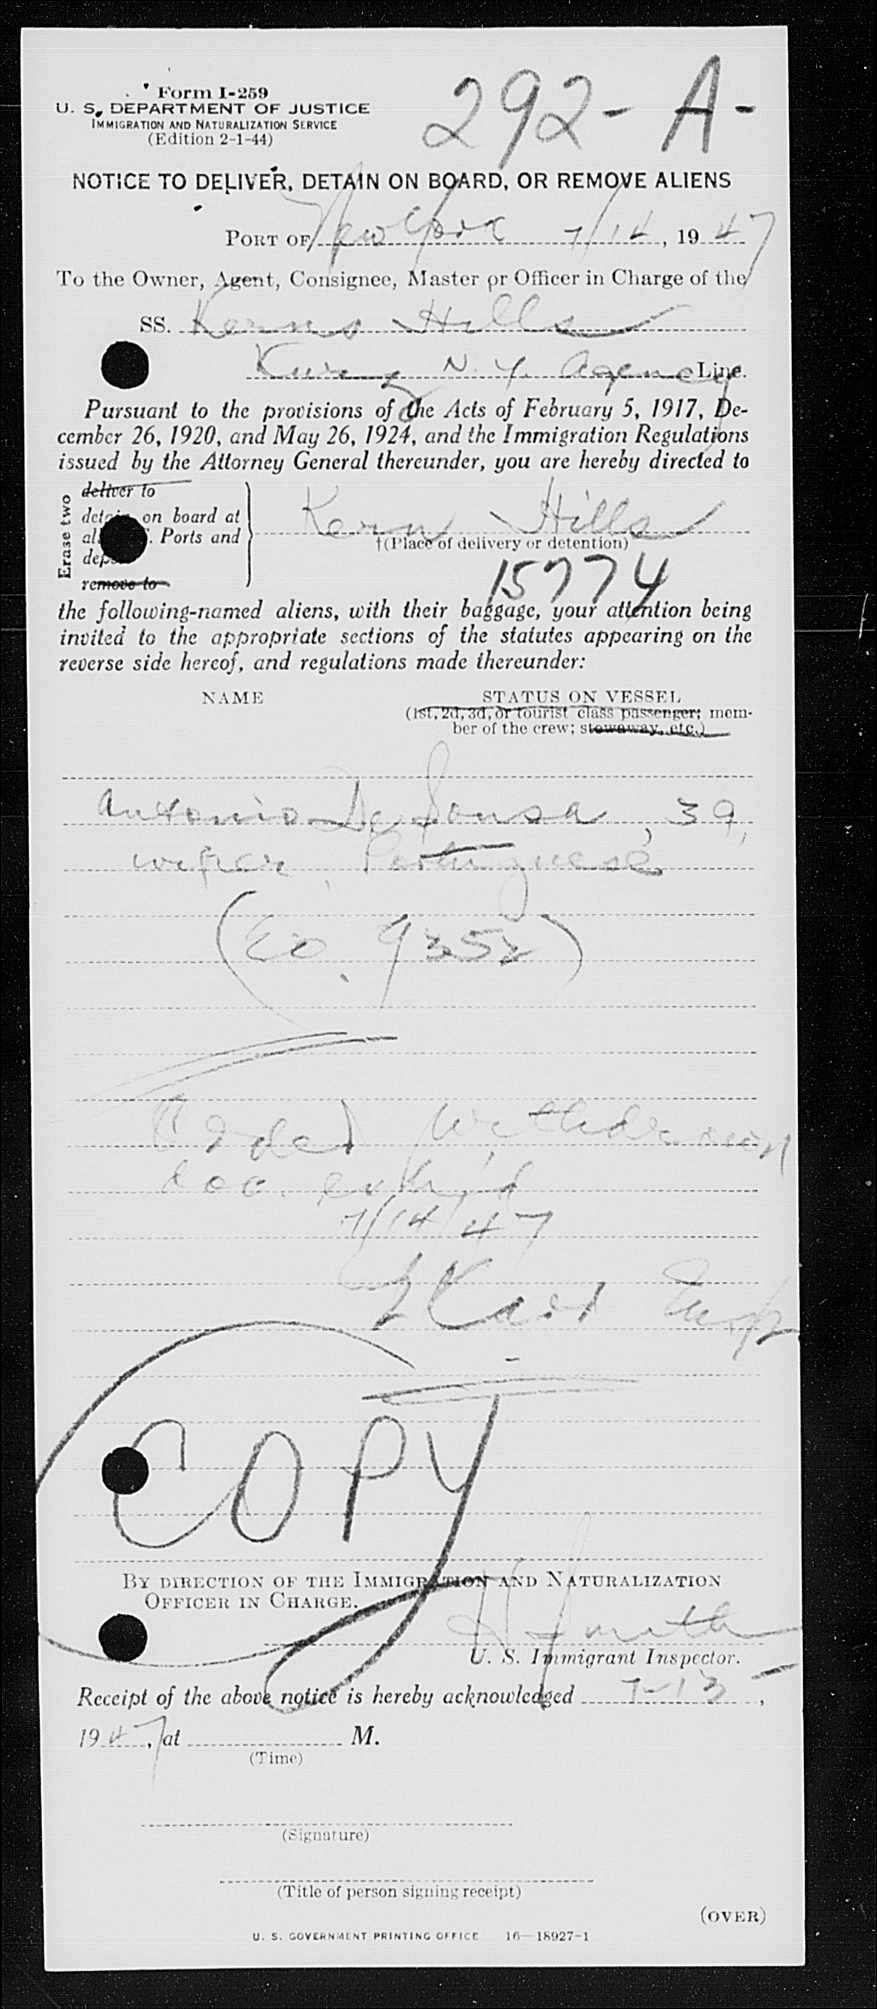 Form I-259
292- A-
U. S. DEPARTMENT OF JUSTICE
IMMIGRATION AND NATURALIZATION SERVICE
(Edition 2-1-44)
NOTICE TO DELIVER, DETAIN ON BOARD, OR REMOVE ALIENS
PORT OF New York 7/14, 1947
To the Owner, Agent, Consignee, Master or Officer in Charge of the
SS. Kerns Hills
N. Y. Agency Line.
Pursuant to the provisions of the Acts of February 5, 1917, De-
cember 26, 1920, and May 26, 1924, and the Immigration Regulations
issued by the Attorney General thereunder, you are hereby directed to
Erase two
deliver to
detain on board at
al . Ports and
dep
remove to
Kern Hills
†(Place of delivery or detention)
15774
the following-named aliens, with their baggage, your attention being
invited to the appropriate sections of the statutes appearing on the
reverse side hereof, and regulations made thereunder:
NAME STATUS ON VESSEL
(1st, 2d, 3d, or tourist class passenger; mem-
ber of the crew; stowaway, etc.)
Antonio De Sousa, 39,
wiper, Portuguese
(EO. 9352)
Order Withdrawn
doc. exh'd
7/14/47
Insp
COPY
BY DIRECTION OF THE IMMIGRATION AND NATURALIZATION
OFFICER IN CHARGE.
H Smith
U. S. Immigrant Inspector.
Receipt of the above notice is hereby acknowledged 7-13,
1947, at M.
(Time)
(Signature)
(Title of person signing receipt)
(OVER)
U. S. GOVERNMENT PRINTING OFFICE 16—18927-1